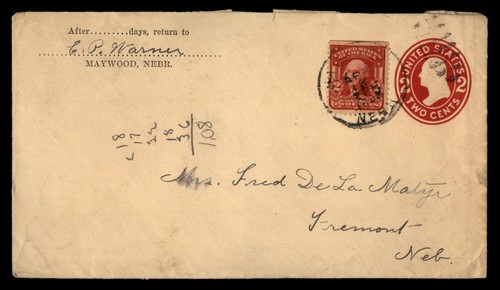 After..........days, return to
C. P. Warner
MAYWOOD, NEBR.
UNITED STATES
TWO CENTS
2
2
NEBR
18
17
22
18
36
108
Mrs. Fred De La Matyr
Fremont
Neb.